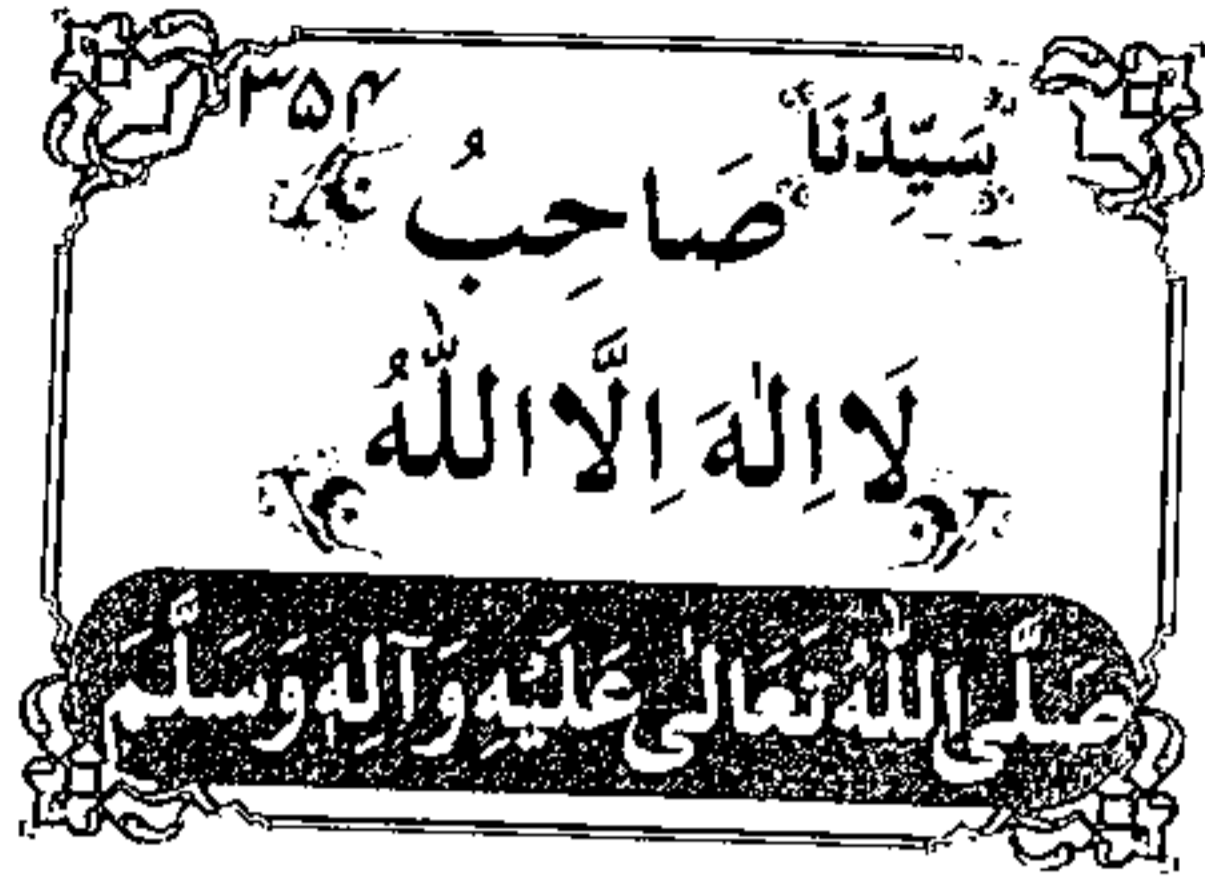 ۳۵۴
سَيِّدُنَا
صَاحِبُ
لَا اِلٰهَ اِلَّا اللّٰهُ
صَلَّى اللّٰهُ تَعَالٰى عَلَيْهِ وَآلِهٖ وَسَلَّمَ